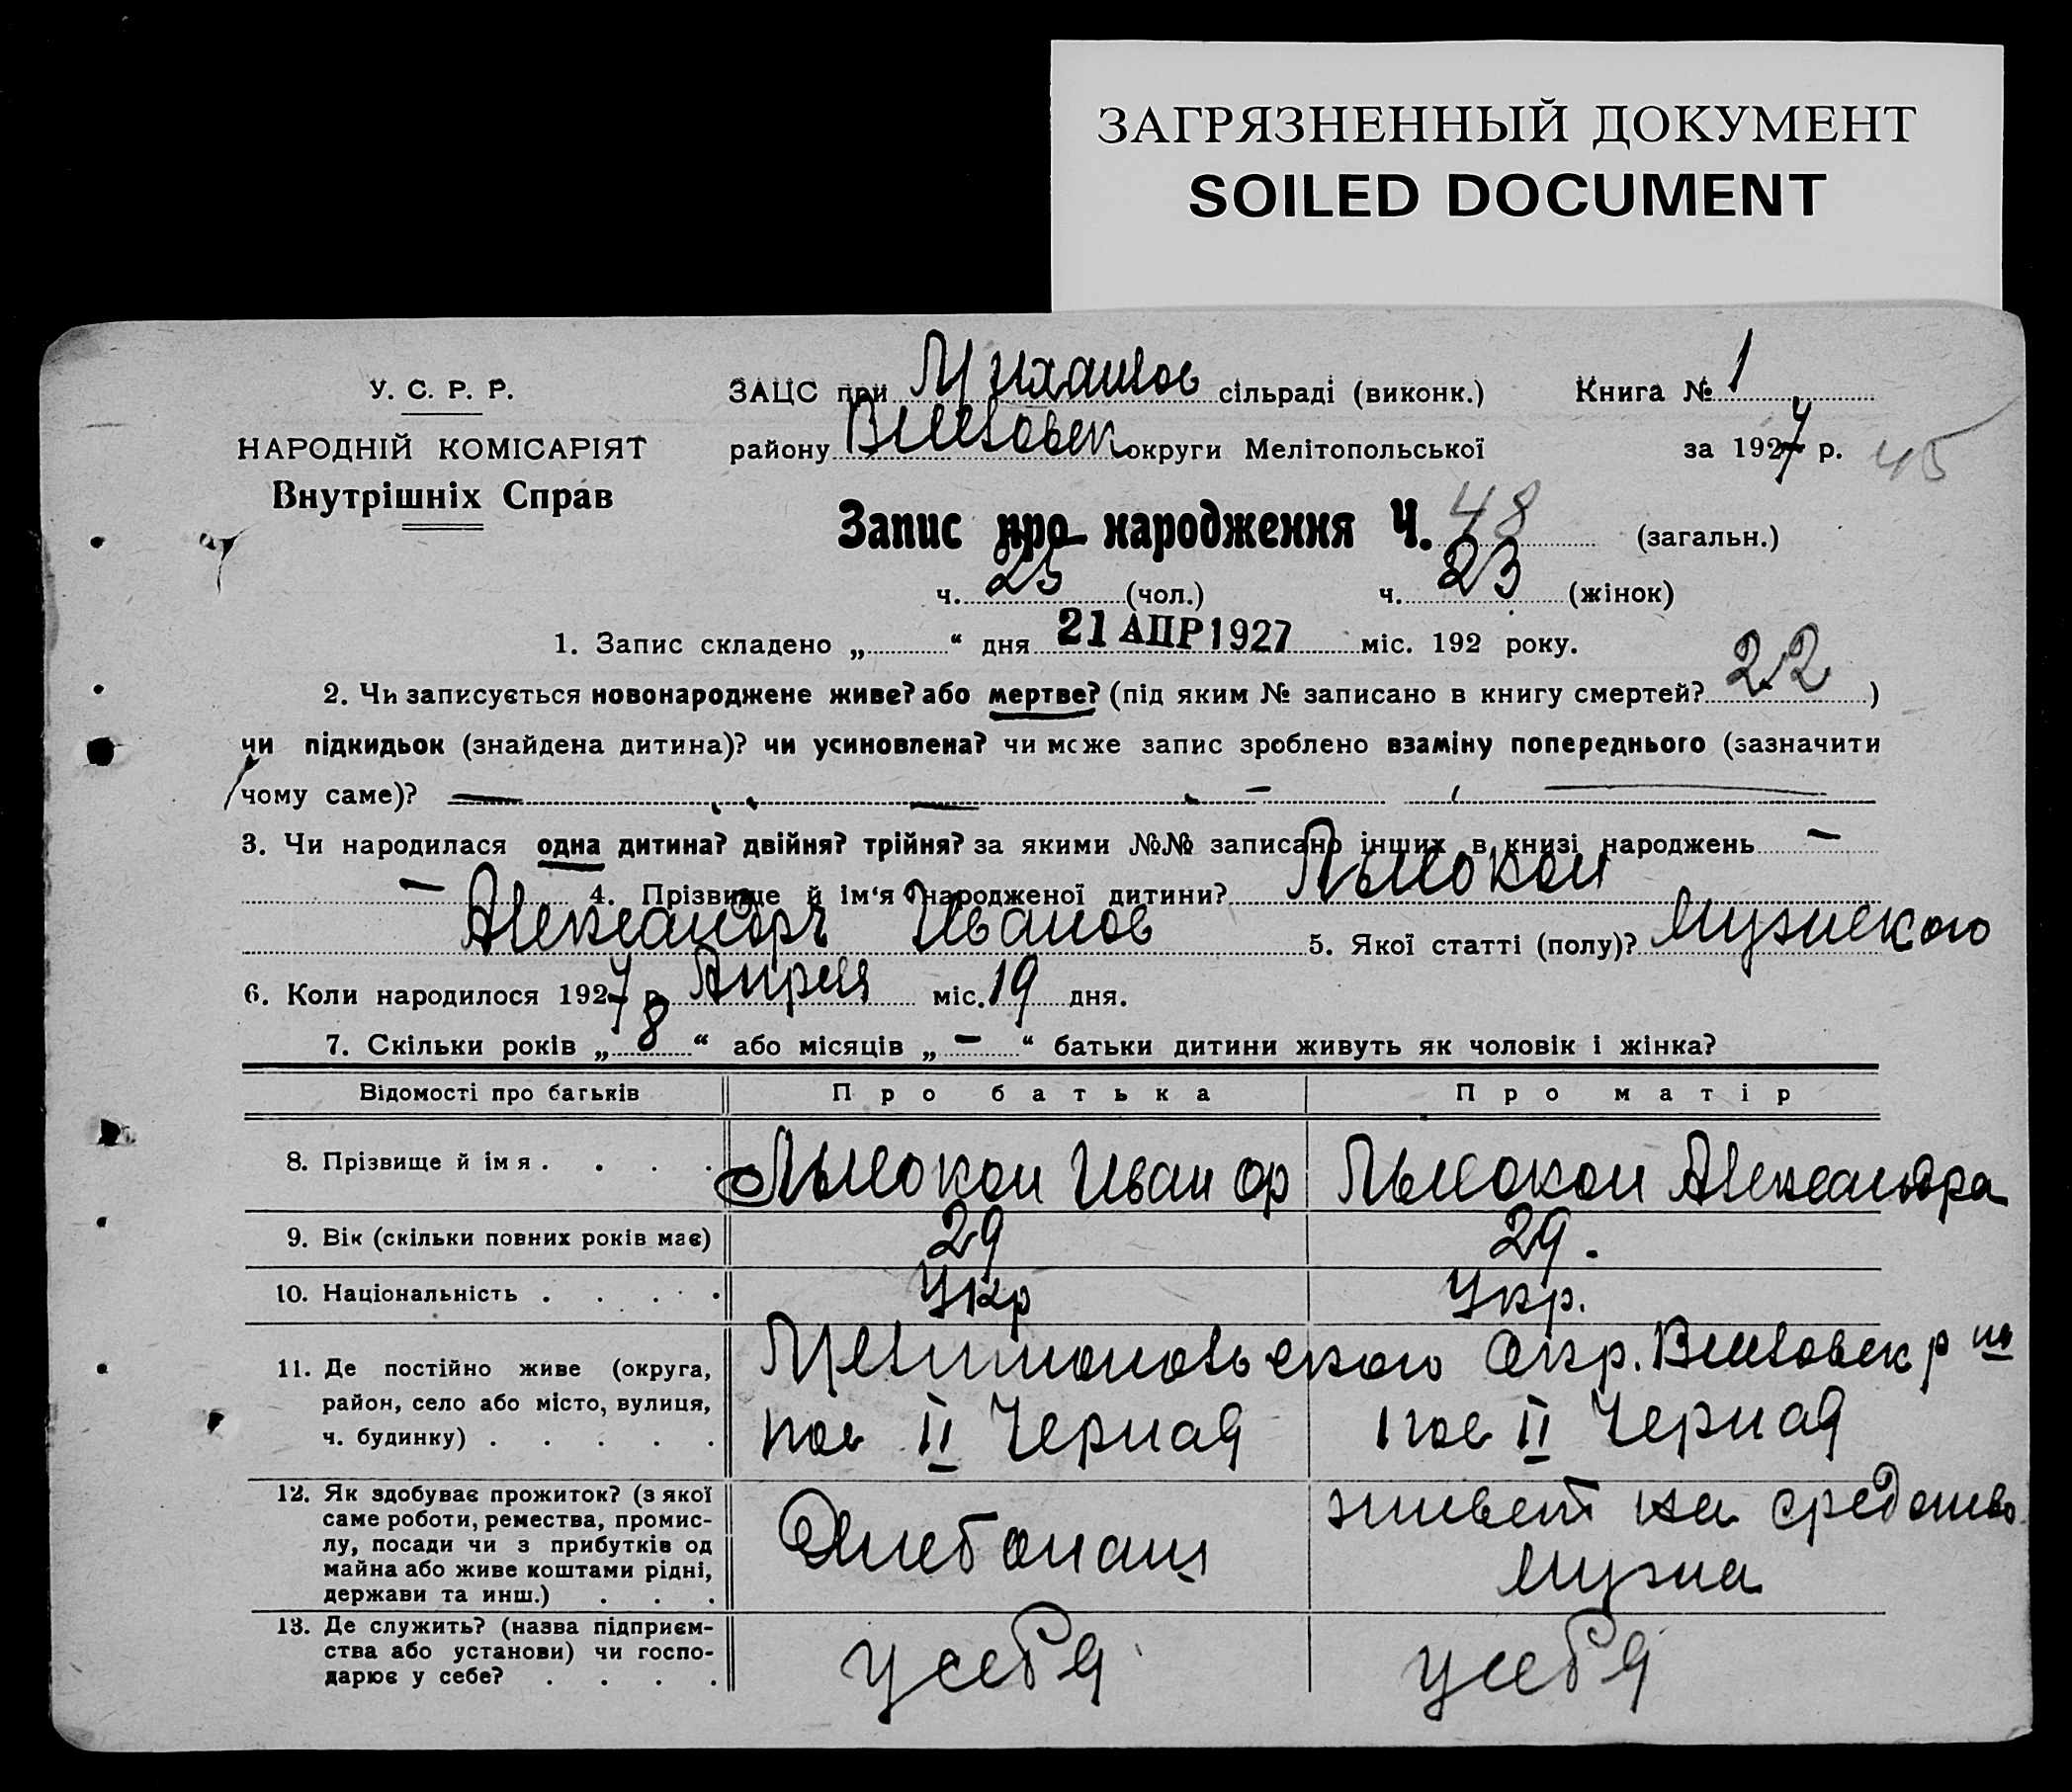 ЗАГРЯЗНЕННЫЙ ДОКУМЕНТ
SOILED DOCUMENT
У. С. Р. Р.
НАРОДНІЙ КОМІСАРІЯТ
Внутрішніх Справ
ЗАЦС при Михайлов сільраді (виконк.)
району округи Мелітопольської
Книга № 1
за 1927 р. 45
Запис про народження Ч. 48 (загальн.)
ч. 25 (чол.) ч. 23 (жінок)
1. Запис складено „ “ дня 21 АПР 1927 міс. 192 року.
2. Чи записується новонароджене живе? або мертве? (під яким № записано в книгу смертей? 22 )
чи підкидьок (знайдена дитина)? чи усиновлена? чи може запис зроблено взаміну попереднього (зазначити
чому саме)? —
3. Чи народилася одна дитина? двійня? трійня? за якими №№ записано інших в книзі народжень —
— 4. Прізвище й ім‘я народженої дитини?
Александръ Иванов 5. Якої статті (полу)? мужского
6. Коли народилося 1927 р. Апреля міс. 19 дня.
7. Скільки років „ 8 “ або місяців „ – “ батьки дитини живуть як чоловік і жінка?
Відомості про батьків Про батька Про матір
8. Прізвище й імя . . . . Иван Александра
9. Вік (скільки повних років має) 29 29.
10. Національність . . . . Укр Укр.
11. Де постійно живе (округа,
район, село або місто, вулиця,
ч. будинку) . . . . .
Мелитопольского Окр. р на
пос II Черная пос II Черная
12. Як здобуває прожиток? (з якої
саме роботи, ремества, промис-
лу, посади чи з прибутків од
майна або живе коштами рідні,
держави та инш.) . . .
Хлебопаш
живет на средство
мужа
13. Де служить? (назва підприєм-
ства або установи) чи госпо-
дарює у себе? . . . .
у себя у себя